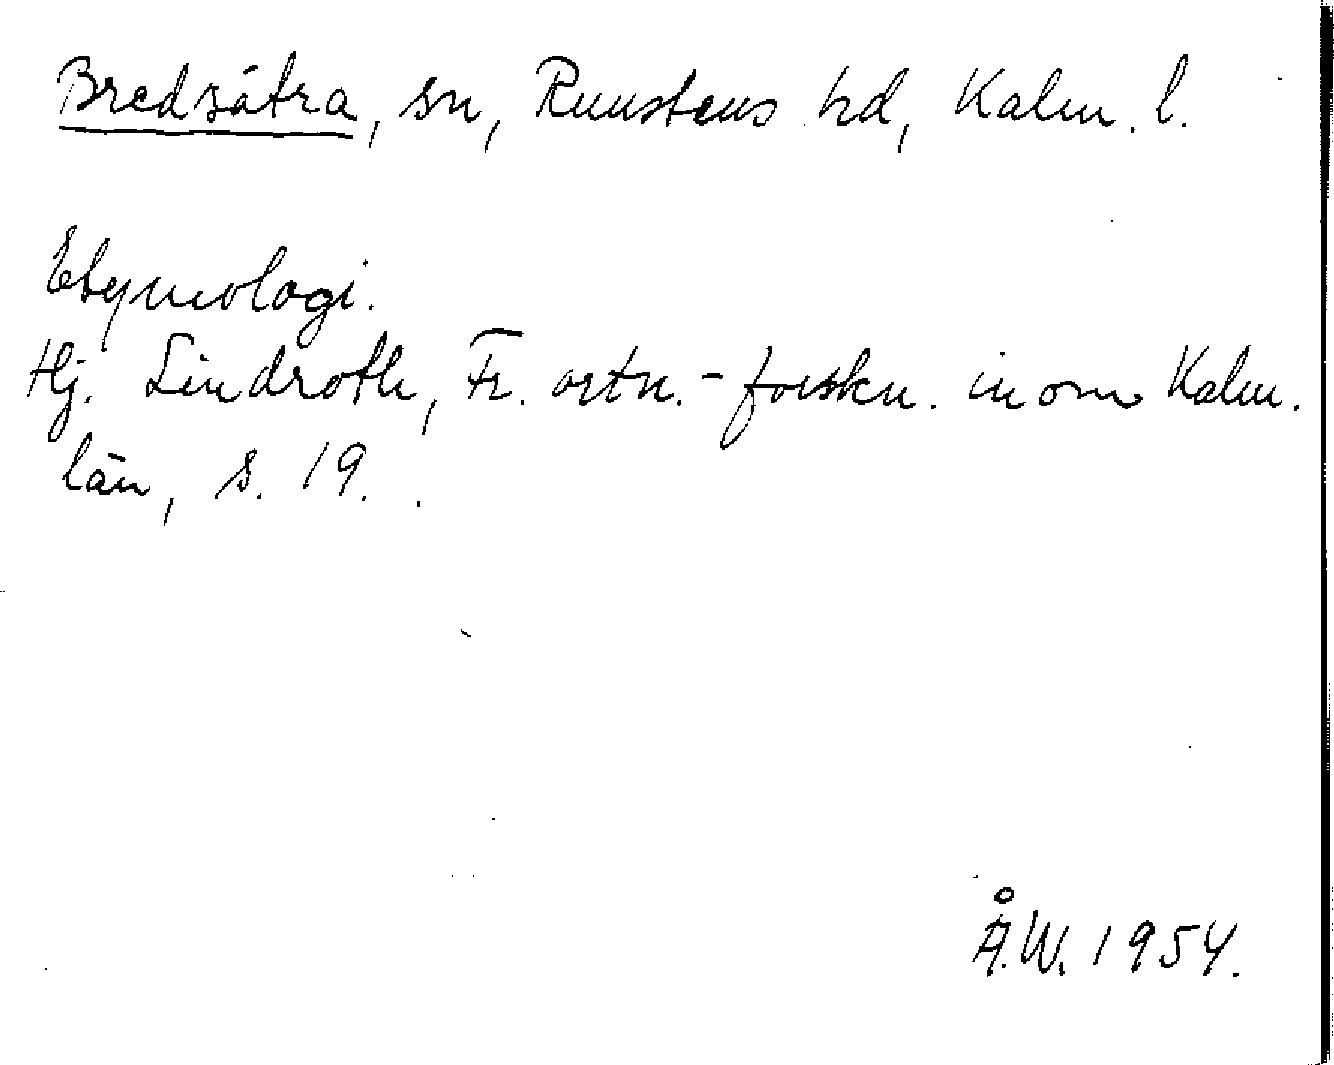 Bredsätra, sn, Runstens hd, Kalm. l.
Etymologi.
Hj. Lindroth, Fr. ortn.-forskn. inom Kalm.
län, s. 19.
Å.W. 1954.